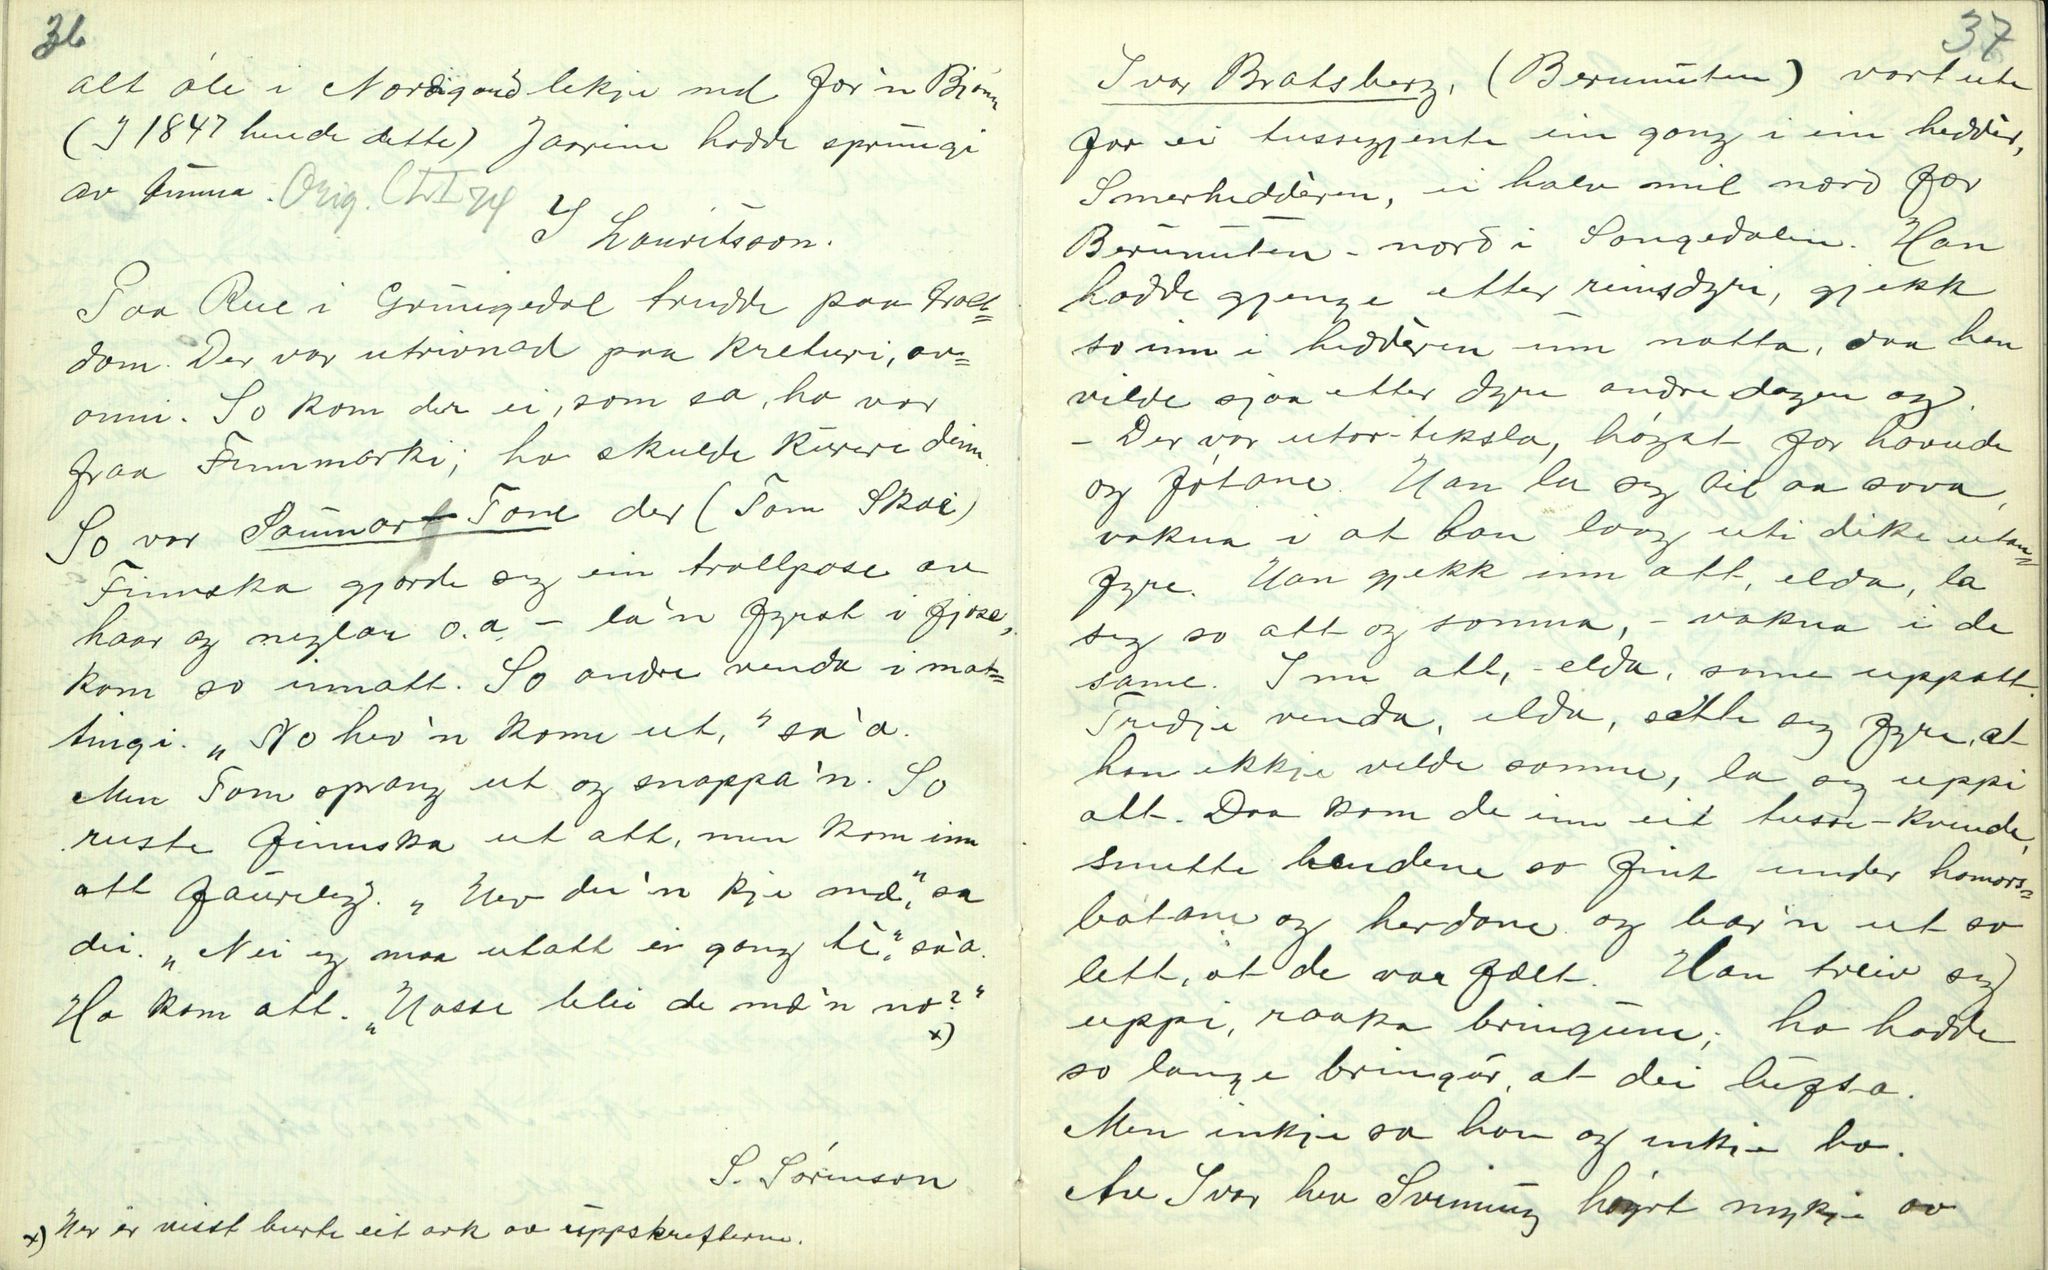 36
alt óli i Nordigard lekje md for'n Bjónn
(I 1847 hende dette) Jaarinn hadde sprungi
av tunna. Orig. CLXI 74
I Lauritsson.
Paa Rue i Grungedal trudde paa troll=
dom. Der var utrivnad paa kreturi, av=
onni. So kom der ei, som sa, ho var
fraa Finnmarki; ho skulde kurere deim.
So var Saumar-Tone der (Tom Skoi)
Finnska gjorde seg ein trollpose av
haar og neglar o.a. – la'n fyrst i fjose,
kom so innatt. So andre venda i mat=
tingi. „No hev'n kome ut," sa'a.
Men Tom sprang ut og snappa'n. So
ruste finnska ut att, men kom inn
att faureleg. „Hev dei'n kje md," sa
dei. „Nei eg maa utatt ein gong te," sa'a.
Ho kom att. „Hosse blei de md'n no?"
x)
S. Sórenson
x) Her er visst burte eit ark av uppskrifterne.
37
Ivar Bratsberg, (Berunuten) vart ute
for ei tussegjente ein gong i ein heddèr,
Smerheddèren, ei halv mil nord for
Berunuten – nord i Songedalen. Han
hadde gjenge etter reinsdyri, gjekk
so inn i heddèren um natta, daa han
vilde sjaa etter dyre andre dagen og.
– Der var utor-teksla, hógst for hovude
og fótane. Han la seg til aa sova,
vakna i at han laag uti dike utan=
fyre. Han gjekk inn att, elda, la
seg so att og somna, – vakna i de
same. Inn att, – elda, same uppatt.
Tredje venda, elda, sètte seg fyre, at
han ikkje vilde somne, la seg uppi
att. Daa kom de inn eit tusse-kvende,
smette hendene so fint under homors=
bótane og herdane og bar'n ut so
lett, at de var fælt. Han treiv seg
uppi, raaka bringune; ho hadde
so lange bringur, at dei lufsa.
Men inkje sa han og inkje ho.
Av Ivar hev Sveinung hóyrt mykje av